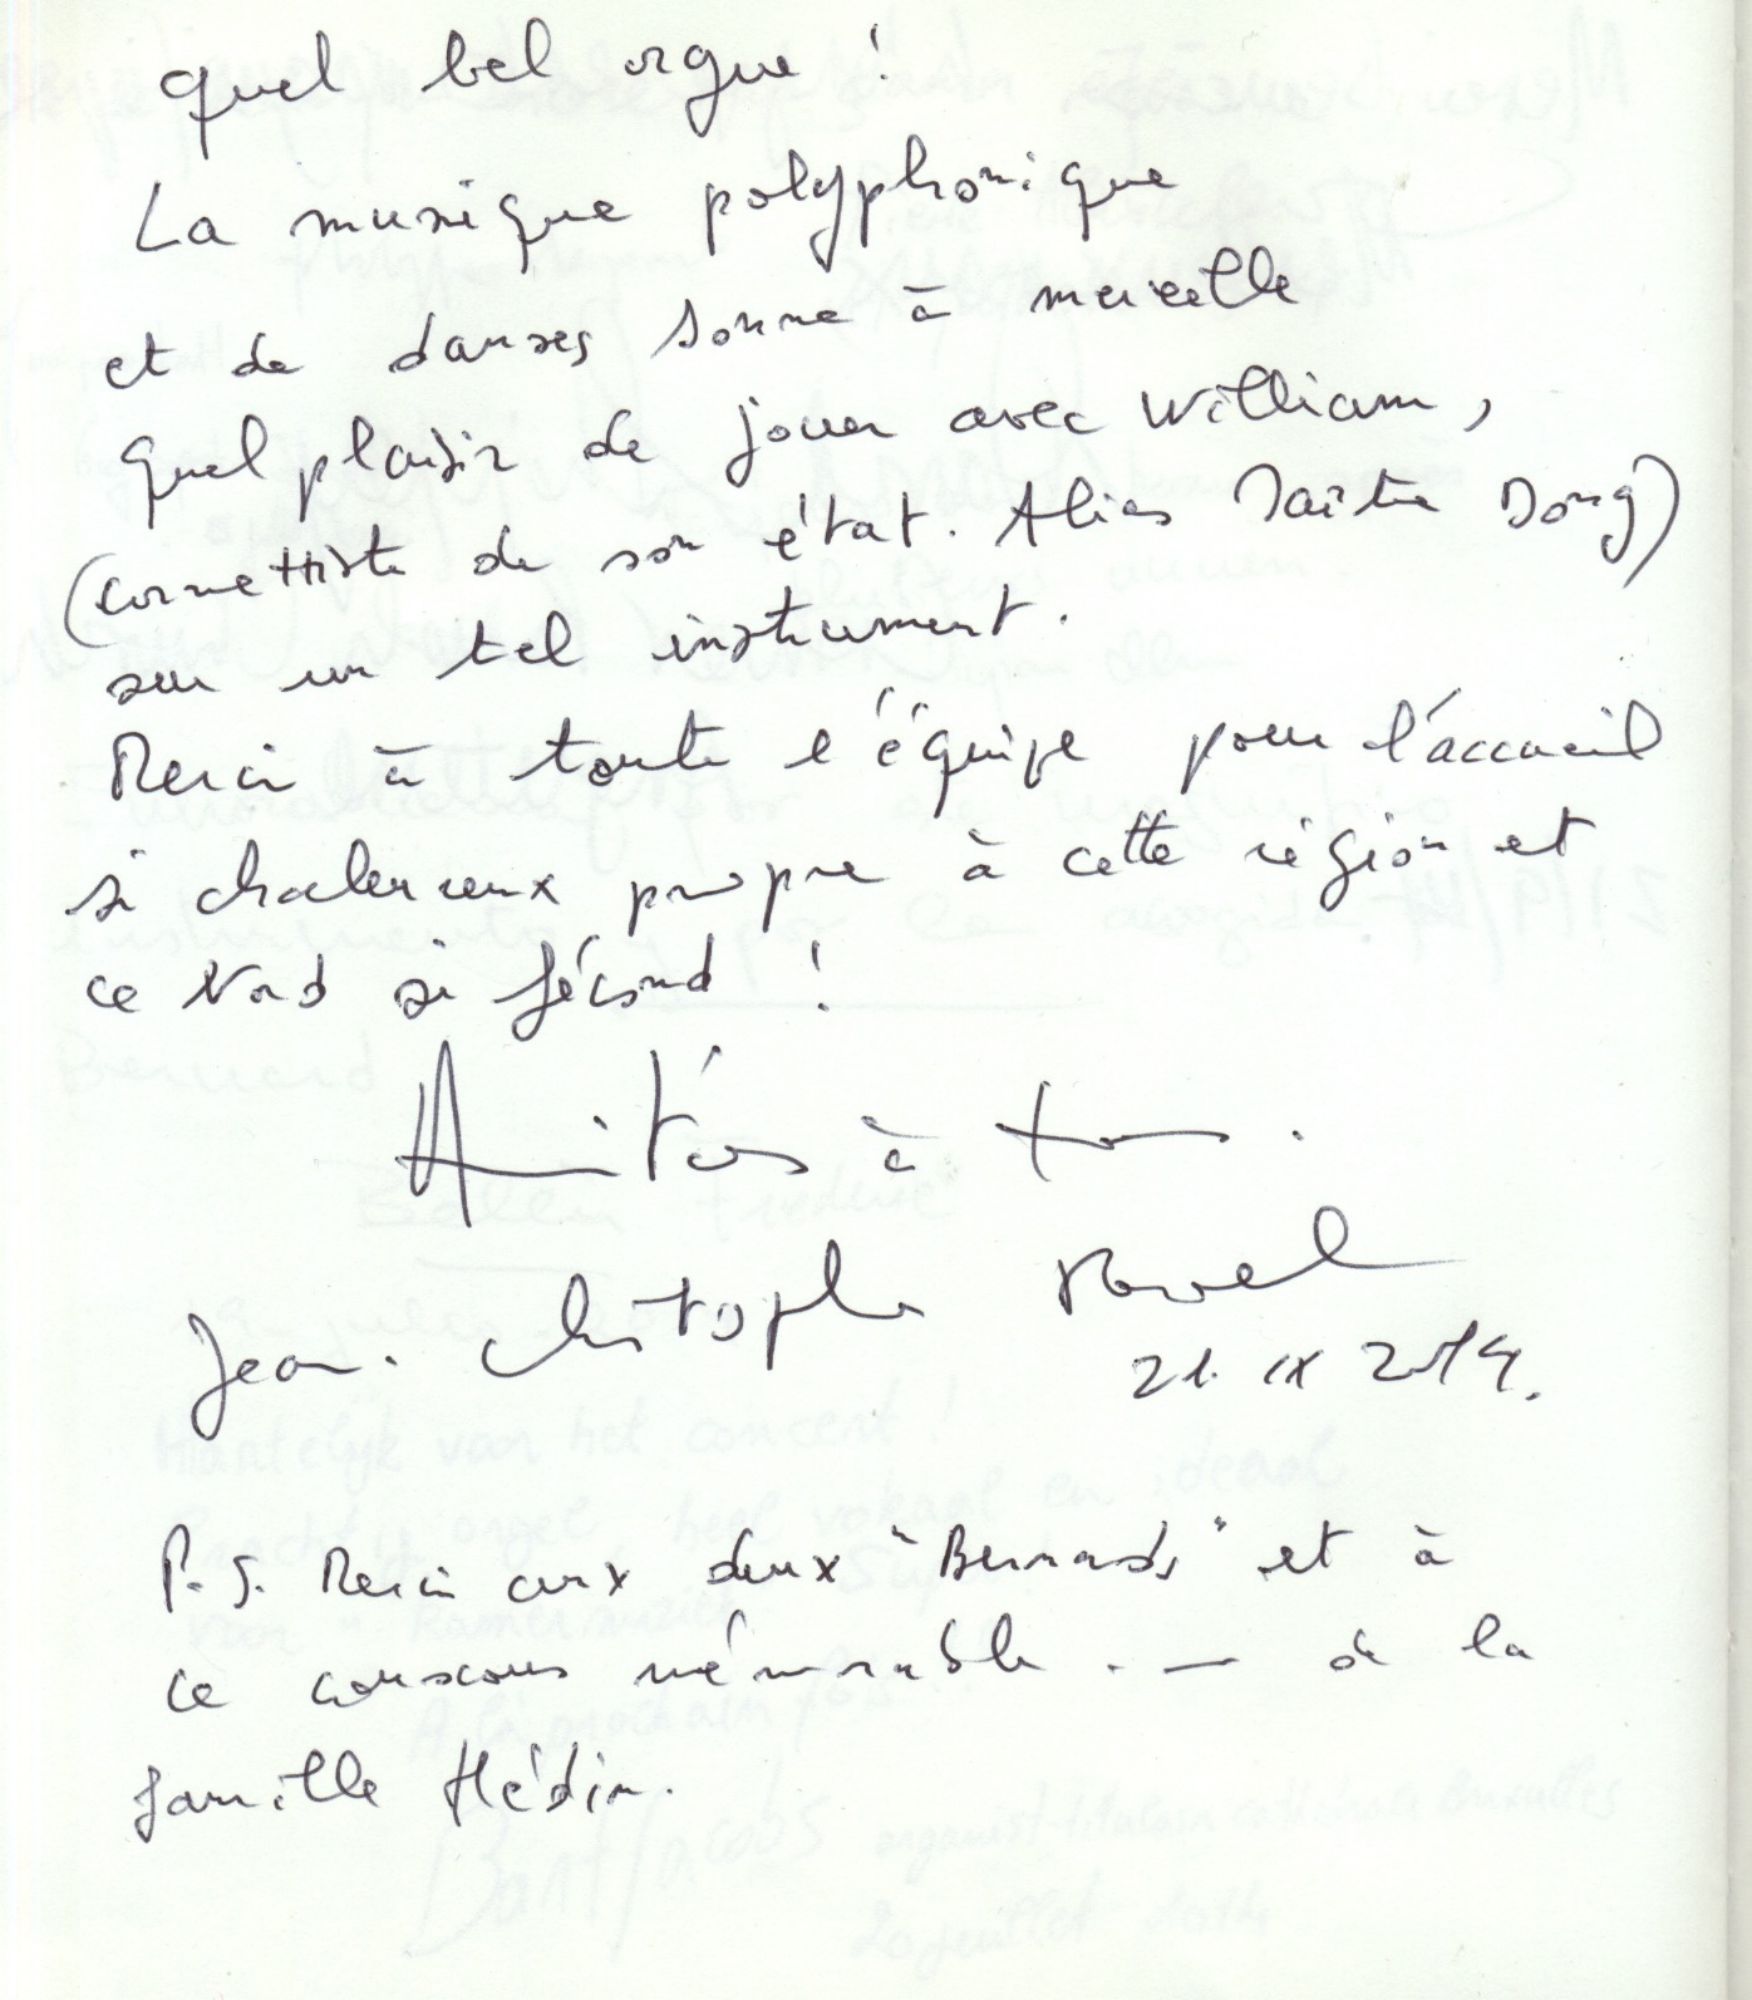 quel bel orgue !
La musique polyphonique
et de danses sonne à merveille
Quel plaisir de jouer avec William,
(cornettiste de son état. Alias Maître Dong)
sur un tel instrument.
Merci à toute l'équipe pour l'accueil
si chalereux propre à cette région et
ce Nord si fécond !
Amitiés à tous.
Jean-Christophe Revel
21. IX 2014.
P.S. Merci aux deux "Bernards" et à
ce couscous mémorable . — de la
famille Hédin.